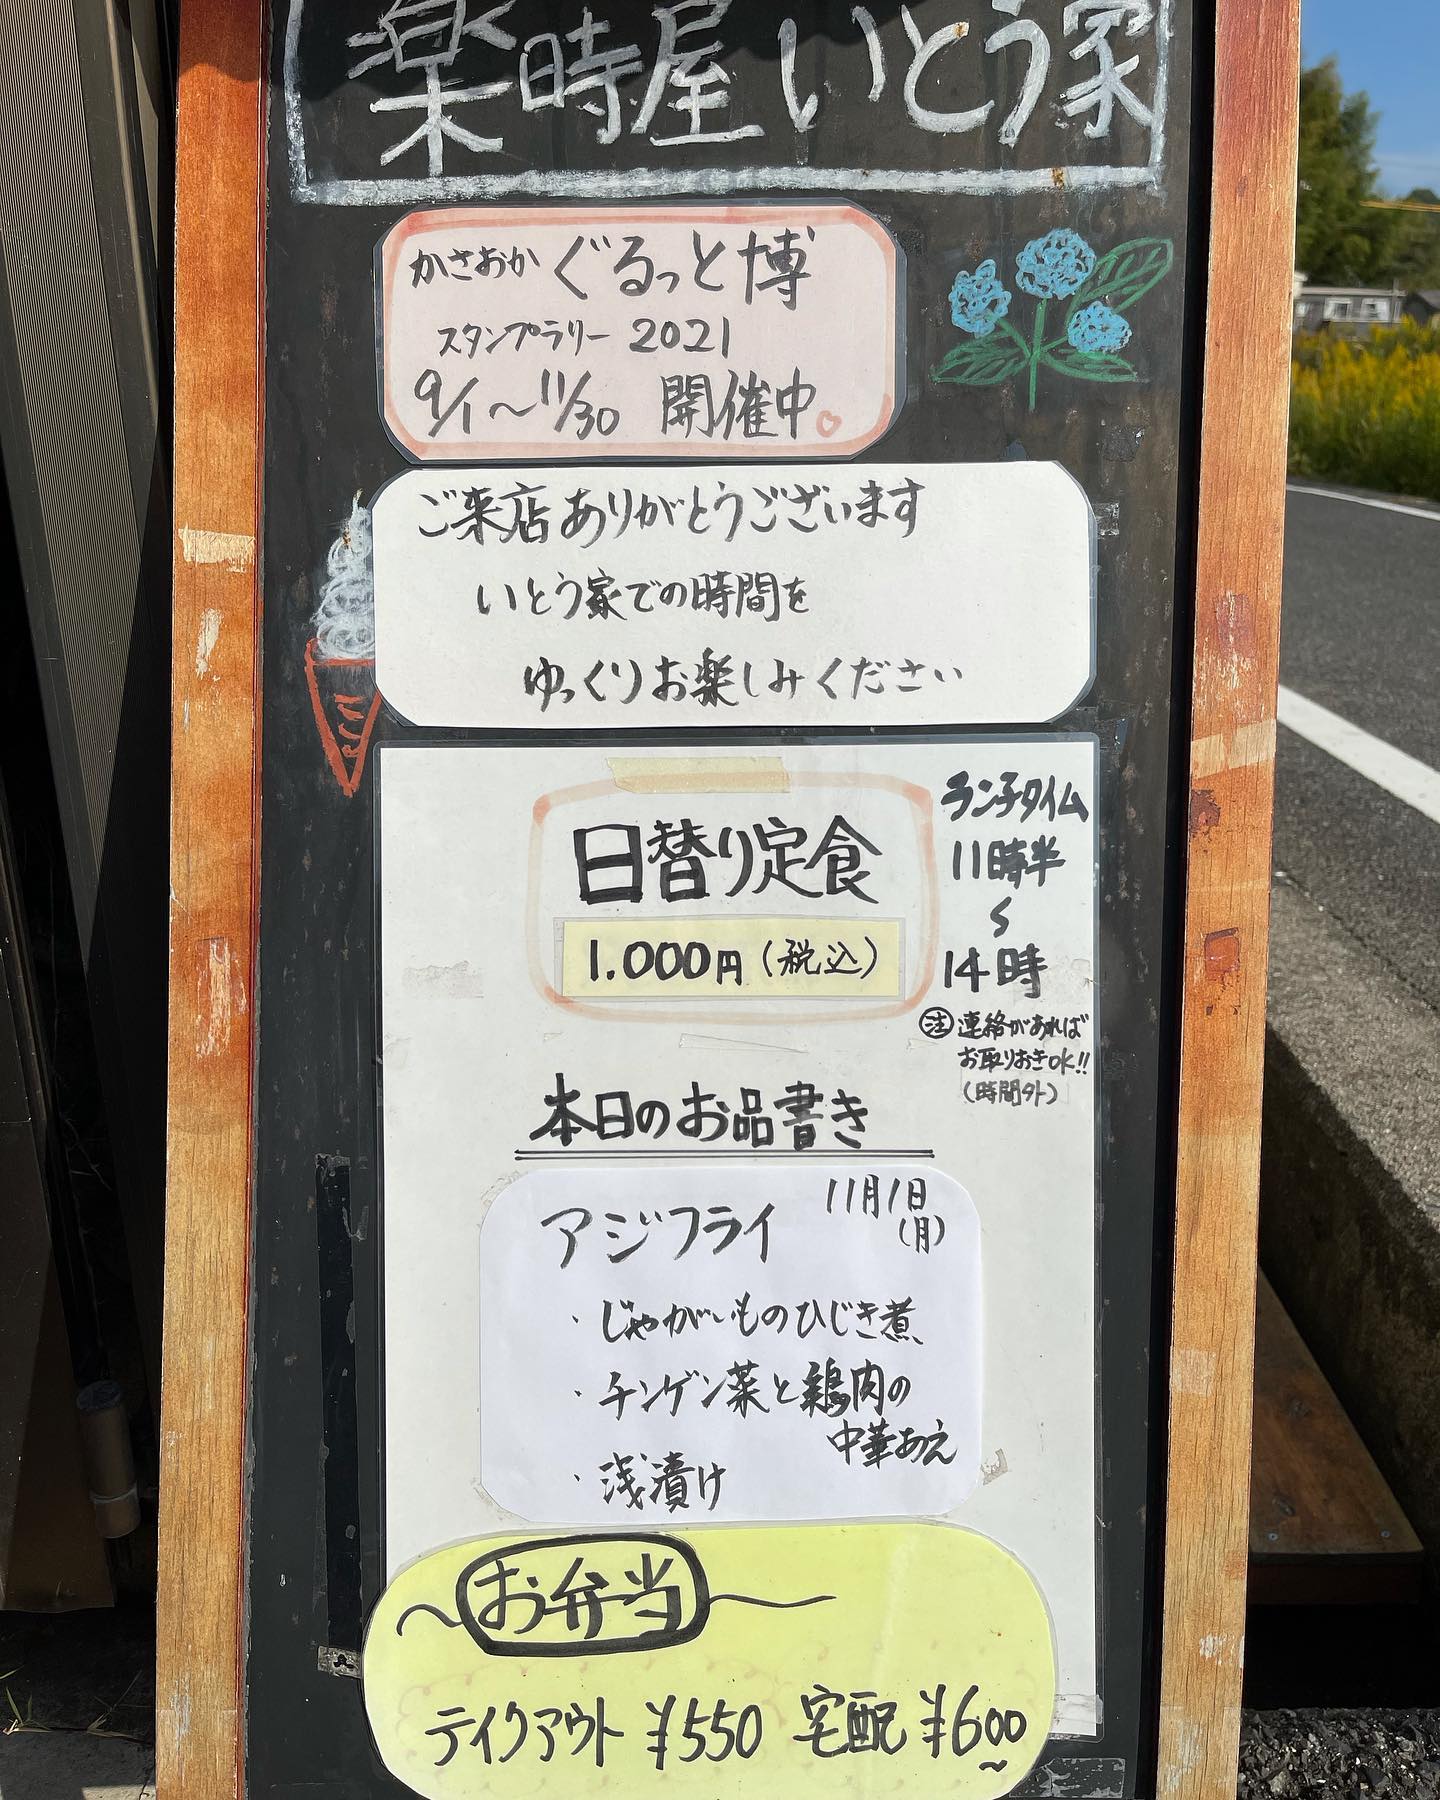 楽時屋いとう家
かさおか ぐるっと博
スタンプラリー 2021
9/1〜11/30 開催中。
ご来店ありがとうございます
いとう家での時間を
ゆっくりお楽しみください
日替り定食
1.000円(税込)
ランチタイム
11時半
〜
14時
注 連絡があれば
お取りおきOK!!
(時間外)
本日のお品書き
11月1日
(月)
アジフライ
・じゃがいものひじき煮
・チンゲン菜と鶏肉の
中華あえ
・浅漬け
〜お弁当〜
テイクアウト ¥550 宅配 ¥600〜